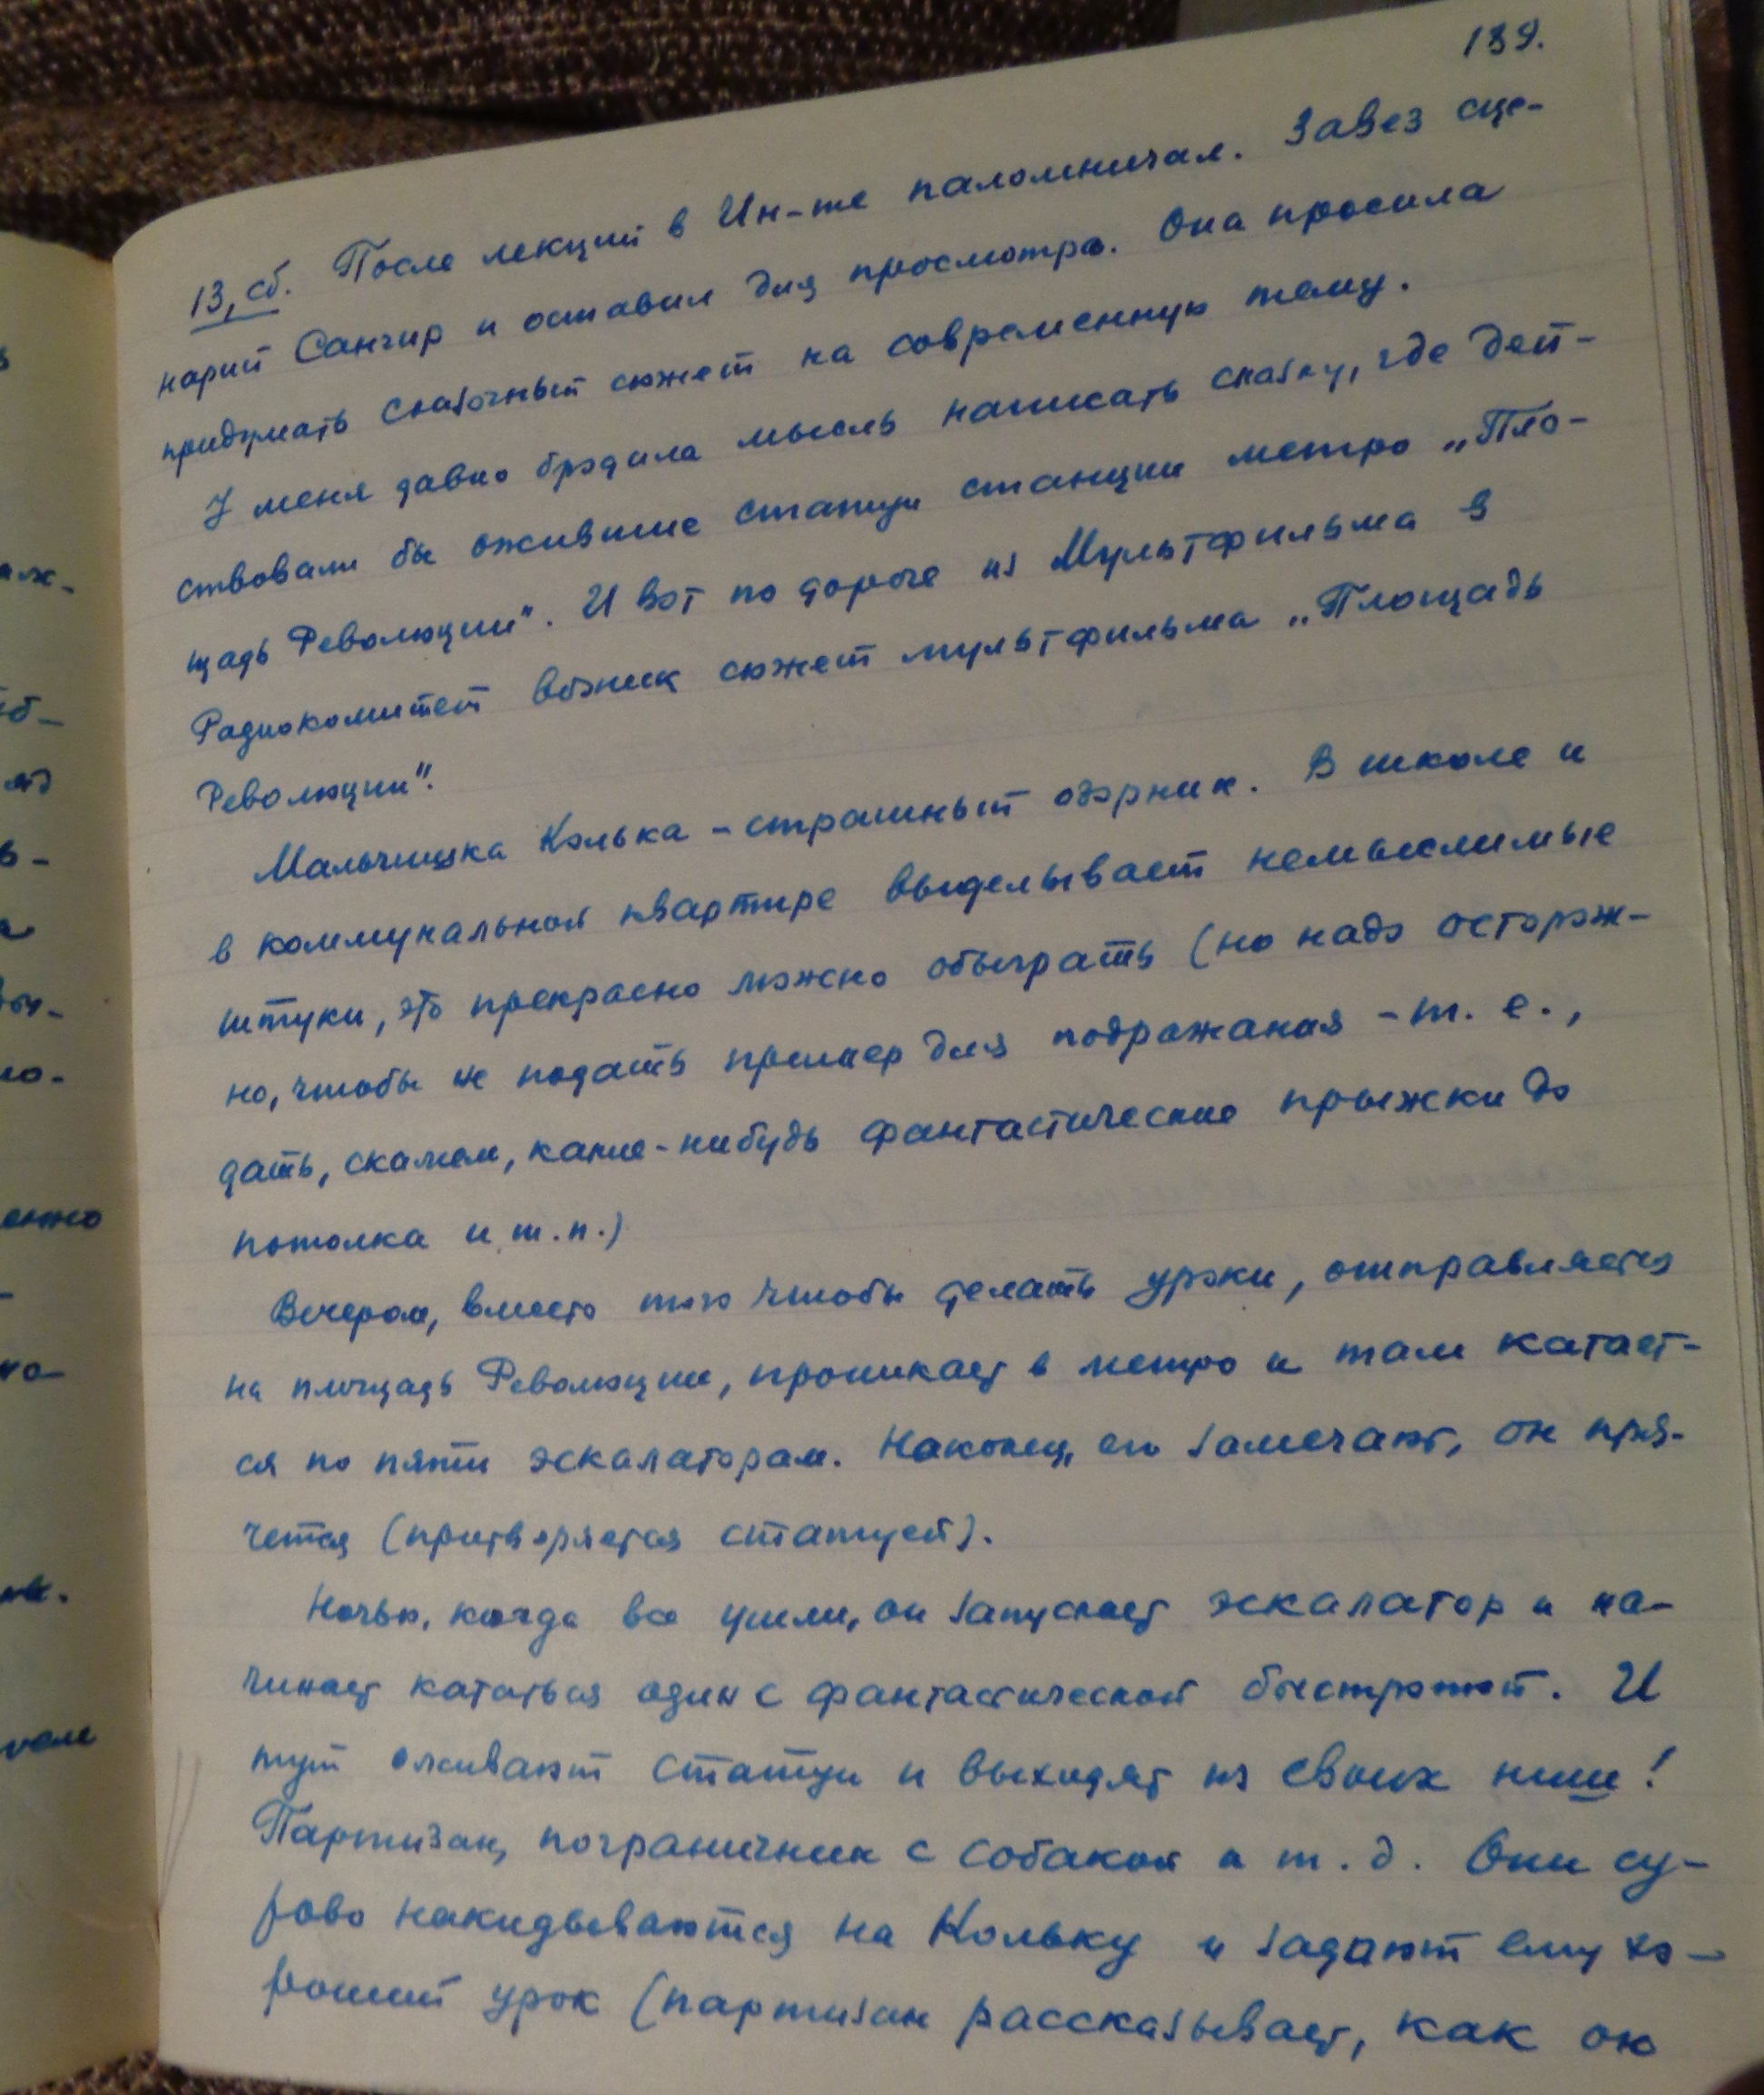 189.
13, сб. После лекций в Ин-те паломничал. Завез сце-
нарий Санчир и оставил для просмотра. Она просила
придумать сказочный сюжет на современную тему.
У меня давно бродила мысль написать сказку, где дей-
ствовали бы ожившие статуи станции метро „Пло-
щадь Революции". И вот по дороге из Мультфильма в
Радиокомитет возник сюжет мультфильма „Площадь
Революции".
Мальчишка Колька – страшный озорник. В школе и
в коммунальной квартире выделывает немыслимые
штуки, это прекрасно можно обыграть (но надо осторож-
но, чтобы не подать пример для подражания – т. е.,
дать, скажем, какие-нибудь фантастические прыжки до
потолка и т.п.)
Вечером, вместо того чтобы делать уроки, отправляется
на площадь Революции, проникает в метро и там катает-
ся по пяти эскалаторам. Наконец, его замечают, он пря-
чется (притворяется статуей).
Ночью, когда все ушли, он запускает эскалатор и на-
чинает кататься один с фантастической быстротой. И
тут оживают статуи и выходят из своих ниш!
Партизан, пограничник с собакой и т. д. Они су-
рово накидываются на Кольку и задают ему хо-
роший урок (партизан рассказывает, как он